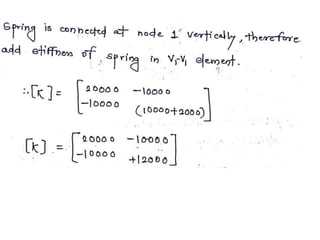 Spring is connected at node 1 vertically, therefore
add stiffness of spring in V₁-V₁ element.
∴ [K] = [ 20000 -10000
-10000 (10000+2000) ]
[K] = [ 20000 -10000
-10000 +12000 ]